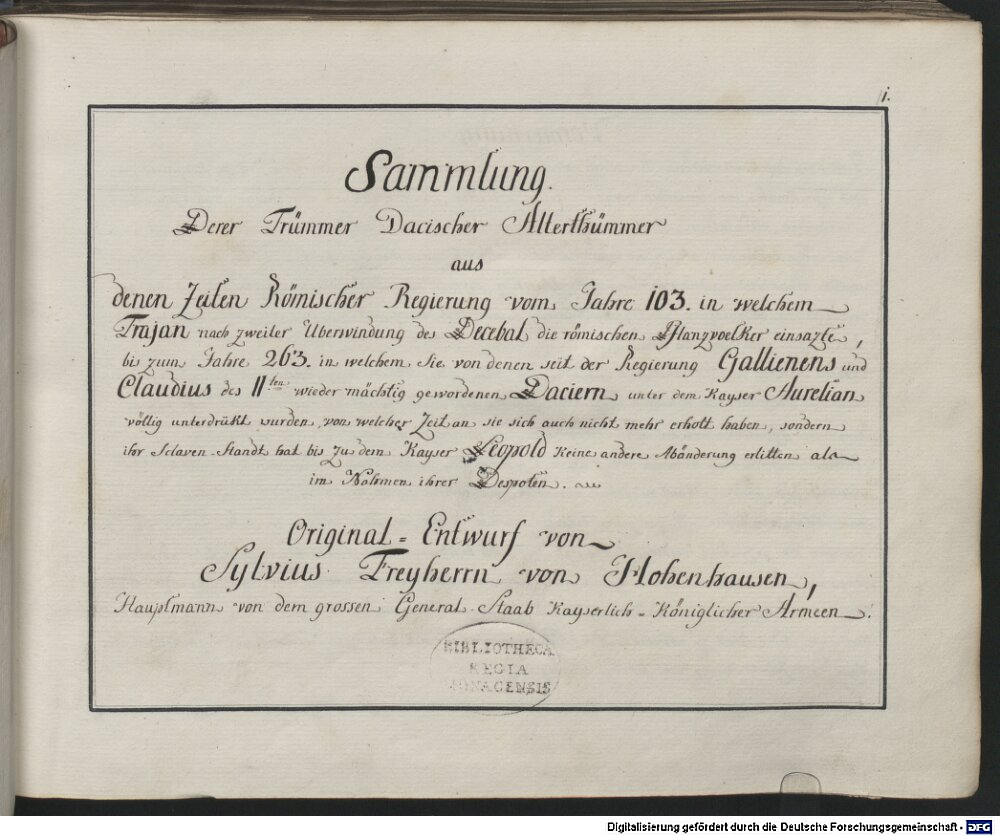 1.
Sammlung.
Derer Trümmer Dacischer Alterthümmer
aus
denen Zeiten Römischer Regierung vom Jahre 103. in welchem
Trajan nach zweiter Uberwindung des Decebal die römischen Pflanzvoelker einsazte,
bis zum Jahre 263. in welchem Sie von denen seit der Regierung Gallienens und
Claudius des IIten wieder mächtig gewordenen Daciern unter dem Kayser Aurelian
völlig unterdrükt wurden, von welcher Zeit an sie sich auch nicht mehr erholt haben, sondern
ihr Sclaven-Standt hat bis zu dem Kayser Leopold keine andere Abänderung erlitten als
im Nahmen ihrer Despoten.
Original-Entwurf von
Sylvius Freyherrn von Hohenhausen,
Hauptmann von dem grossen General-Staab Kayserlich-Königlicher Armeen.
BIBLIOTHECA
REGIA
MONACENSIS
Digitalisierung gefördert durch die Deutsche Forschungsgemeinschaft - DFG